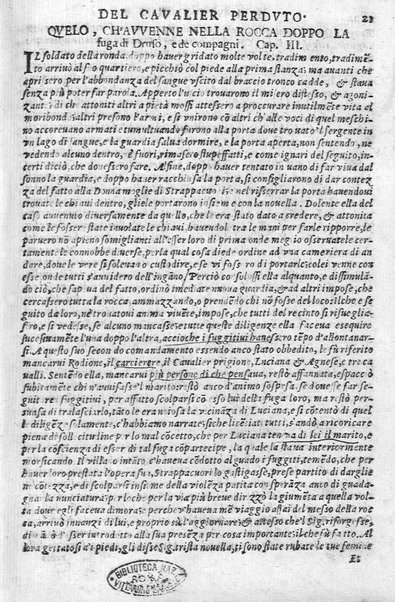 DEL CAVALIER PERDVTO. 23
QVELO, CH'AVVENNE NELLA ROCCA DOPPO LA
fuga di Druso, e de compagni. Cap. III.
IL soldato della ronda, doppo hauer gridato molte volte, tradimento, tradimẽ-
to arriuò al so quartiero, e picchiò col piede alla prima stanza; ma auanti che
aprissero per l'abbondanza del sangue vscito dal braccio tronco cadde, e staua
senza più poter far parola. Apperto l'vscio trouarono il misero disteso, & agoni-
zante di che attoniti altri a pietà mossi attessero a proccurare inutilmẽte vita al
moribondo, altri presero l'armi, e si vnirono cõ altri che alle voci di quel meschi-
no accoreuano armati e tumultuando furono alla porta doue trouato l'sergente in
vn lago di sangue, e la guardia salua dormire, e la porta aperta, non sentendo, ne
vedendo alcuno dentro, e fuori, rimasero stupeffatti, e come ignari del seguito, in-
certi di ciò, che douessero fare. Al fine, dopo hauer tentato in uano di far vina dal
sonno la guardia, e doppo hauer racchiusa la porta, si consigliarono di dar contez-
za del fatto alla Dama moglie di Strappacuo
trouate le chiaui dentro, gliele portarono insieme con la nouella. Dolente ella del
caso auuenuto diuersamente da quello, che l'era stato dato a credere, & attonita
come le fosser state inuolate le chiaui, hauendole tra le mani per farle ripporre, le
paruero nõ apieno somiglianti all'esser loro di prima onde meglio osseruatele cer-
tamente le connobbe diuerse, per la qual cosa diede ordine ad vna cameriera di an
dare, doue le vere si soleuano custodire, e se vi fosser di portarcele: colei venne con
esse onde tutti s'auuidero dell'inganno. Perciò consolossi ella alquanto, e dissimulã-
do ciò, che sapeua del fatto, ordinò immediate noua guardia, & ad altri impose, che
cercasser tutta la rocca, ammazzando, o prendẽdo chi nõ fosse del loco: il che e se
guito da loro, nè trouatoui anima viuente, impose, che tutti del recinto si risueglia-
sero, e si vedesse, se alcuno mancaua oue tutte queste diligenze ella faceua esequire
successiuamẽte l'una doppo l'altra, accioche i fuggitiui hauessero tẽpo d'allontanar-
si. A questo suo secondo comandamento essendo anco obbedito, le fù referito
mancarui Rodione, il carceriere, il Caualier prigione, Luciana & Agnese, e tre ma
nalli. Sentito ella, mancarui più persone di che pensaua, restò affannata, e spacciò
subitamẽte chi n'auuisasse l'marito: restò anco d'animo sospesa, se douesse far se-
guit re i fuggitini, per affatto scolparsi co'l solui della fuga loro, ma restò per-
suasa di tralasciarlo, tãto le era noiosa la vicinãza di Luciana, e si cõtentò di quel
l diligẽze solamente, c'habbiamo narrate: siche licẽtiati tutti, s'andò a ricoricare
piena di sollicitudine per lo mal cõcetto, che per Luciana teneua di lei il marito, e
per la coscienza di esser di tal fuga cõpartecipe, la quale la staua interiormente
morsificando. Il villano intãto c'haueua cõdotto al guado i fuggiti, temẽdo, che per
hauer loro prestata l'opera, Strappacuori lo gastigasse, prese partito di dargline
contezza, e di scolparsi insieme della violẽza patita con speranza anco di guada-
gna la nunciatura: perloche per la via più breue dirizzò la giumẽta a quello vol-
ta doue egli faceua dimora: e perche haueua mẽ viaggio assai del messo della roc-
ca, arriuò innanzi di lui, e proprio su l'aggiornare & acceso che l'Sig. risforgesse,
dimãdò d'esser introdotto alla sua presẽza per cosa importante: il che fù fatto. Al
lora gettatosi a' piedi, gli disse Sig. trista nouella, ti sono state rubate le tue femine
Et
BIBLIOTECA NAZ
ROMA
VITTORIO EMANUELE